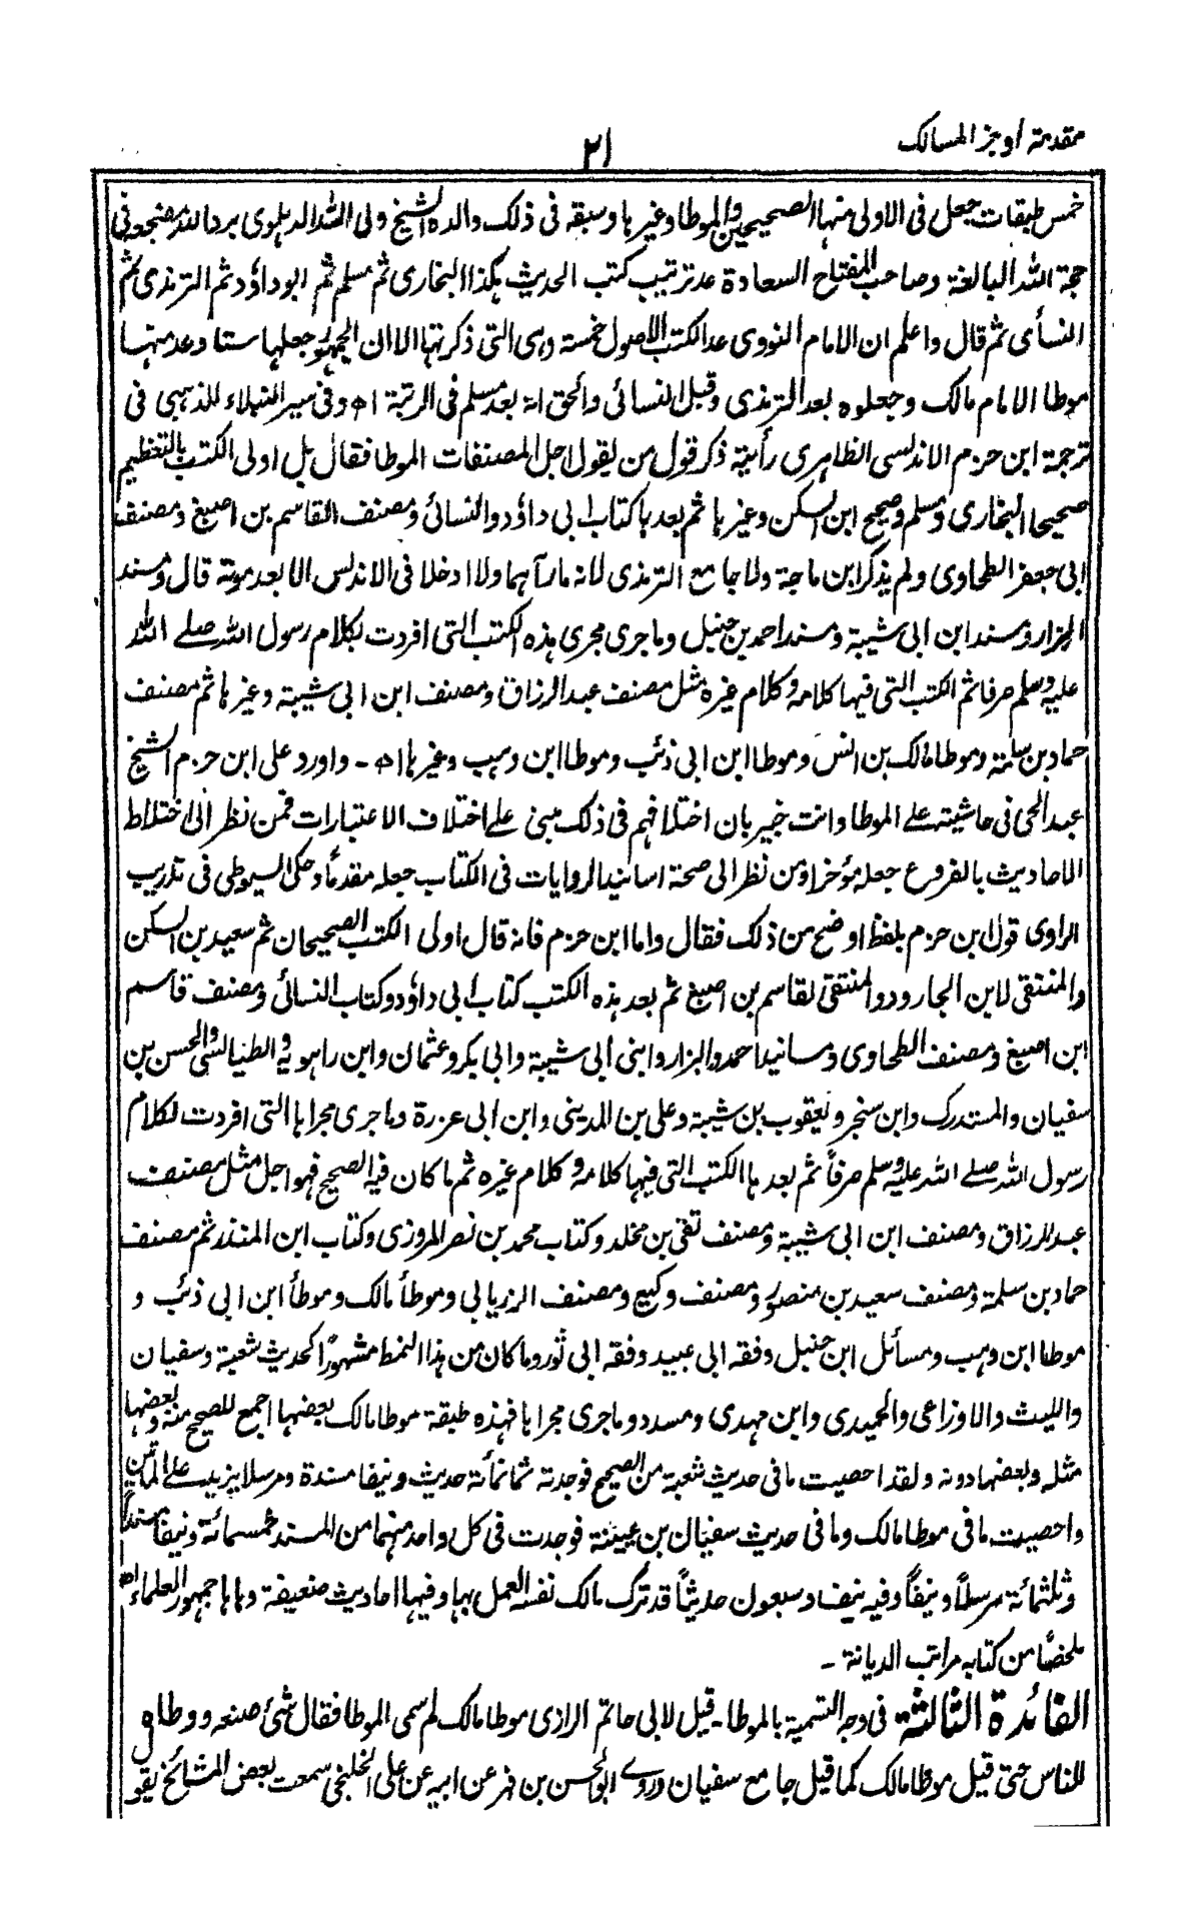 مقدمة اوجز المسالك
٢١
خمس طبقات جعل فى الاولى منها الصحيحين والموطا وغيرها وسبقه فى ذلك والده الشيخ ولى الله الدهلوى برد الله مضجعه فى
حجة الله البالغة وصاحب المفتاح السعادة عد ترتيب كتب الحديث هكذا البخارى ثم مسلم ثم ابو داؤد ثم الترمذى ثم
النسأى ثم قال واعلم ان الامام النووى عد الكتب الاصول خمسة وهى التى ذكرتها الا ان الجمهور جعلها ستا وعد منها
موطا الامام مالك وجعلوه بعد الترمذى وقبل النسائى والحق انه بعد مسلم فى الرتبة اھ وفى سير النبلاء للذهبى فى
ترجمة ابن حزم الاندلسى الظاهرى رأيته ذكر قول من يقول اجل المصنفات الموطا فقال بل اولى الكتب بالتعظيم
صحيحا البخارى ومسلم وصحيح ابن السكن وغيرها ثم بعدها كتاب ابى داؤد والنسائى ومصنف القاسم بن اصبغ ومصنف
ابى جعفر الطحاوى ولم يذكر ابن ماجة ولا جامع الترمذى لانه ما رآهما ولا ادخلا فى الاندلس الا بعد موته قال ومسند
البزار ومسند ابن ابى شيبة ومسند احمد بن حنبل وما جرى مجرى هذه الكتب التى افردت بكلام رسول الله صلے الله
عليه وسلم صرفا ثم الكتب التى فيها كلامه وكلام غيره مثل مصنف عبد الرزاق ومصنف ابن ابى شيبة وغيرها ثم مصنف
حماد بن سلمة وموطا مالك بن انس وموطا ابن ابى ذئب وموطا ابن وهب وغيرها اھ - واورد على ابن حزم الشيخ
عبد الحى فى حاشيته على الموطا وانت خبير بان اختلافهم فى ذلك مبنى على اختلاف الاعتبارات فمن نظر الى اختلاط
الاحاديث بالفروع جعله مؤخرا ومن نظر الى صحة اسانيد الروايات فى الكتاب جعله مقدماً وحكى السيوطى فى تدريب
الراوى قول ابن حزم بلفظ اوضح من ذلك فقال واما ابن حزم فانه قال اولى الكتب الصحيحان ثم سعيد بن السكن
والمنتقى لابن الجارود والمنتقى لقاسم بن اصبغ ثم بعد هذه الكتب كتاب ابى داؤد وكتاب النسائى ومصنف قاسم
ابن اصبغ ومصنف الطحاوى ومسانيد احمد والبزار وابنى ابى شيبة وابى بكر وعثمان وابن راهويه والطيالسى والحسن بن
سفيان والمستدرك وابن سنجر ويعقوب بن شيبة وعلى بن المدينى وابن ابى عزرة وما جرى مجراها التى افردت لكلام
رسول الله صلے الله عليه وسلم صرفاً ثم بعدها الكتب التى فيها كلامه وكلام غيره ثم ما كان فيه الصحيح فهو اجل مثل مصنف
عبد الرزاق ومصنف ابن ابى شيبة ومصنف تقى بن مخلد وكتاب محمد بن نصر المروزى وكتاب ابن المنذر ثم مصنف
حماد بن سلمة ومصنف سعيد بن منصور ومصنف وكيع ومصنف الزريابى وموطأ مالك وموطأ ابن ابى ذئب و
موطا ابن وهب ومسائل ابن حنبل وفقه ابى عبيد وفقه ابى ثور وما كان من هذا النمط مشهورًا كحديث شعبة وسفيان
والليث والاوزاعى والحميدى وابن مهدى ومسدد وما جرى مجراها فهذه طبقة موطا مالك بعضها اجمع للصحيح منه وبعضها
مثله وبعضها دونه ولقد احصيت ما فى حديث شعبة من الصحيح فوجدته ثمانمأئة حديث ونيفا مسندة ومرسلا يزيد على المأتين
واحصيت ما فى موطا مالك وما فى حديث سفيان بن عيينة فوجدت فى كل واحد منهما من المسند خمسمائة ونيفا مسنداً
وثلثمائة مرسلاً ونيفاً وفيه نيف وسبعون حديثاً قد ترك مالك نفسه العمل بها وفيها احاديث ضعيفة وهاها جمهور العلماء اھ
ملخصًا من كتابه مراتب الديانة -
الفائدة الثالثة فى وجه التسمية بالموطا - قيل لابى حاتم الرازى موطا مالك لم سمى الموطا فقال شئ صنعه ووطاه
للناس حتى قيل موطا مالك كما قيل جامع سفيان وروے ابو الحسن بن فهر عن ابيه عن على الخلنجى سمعت بعض المشائخ يقو